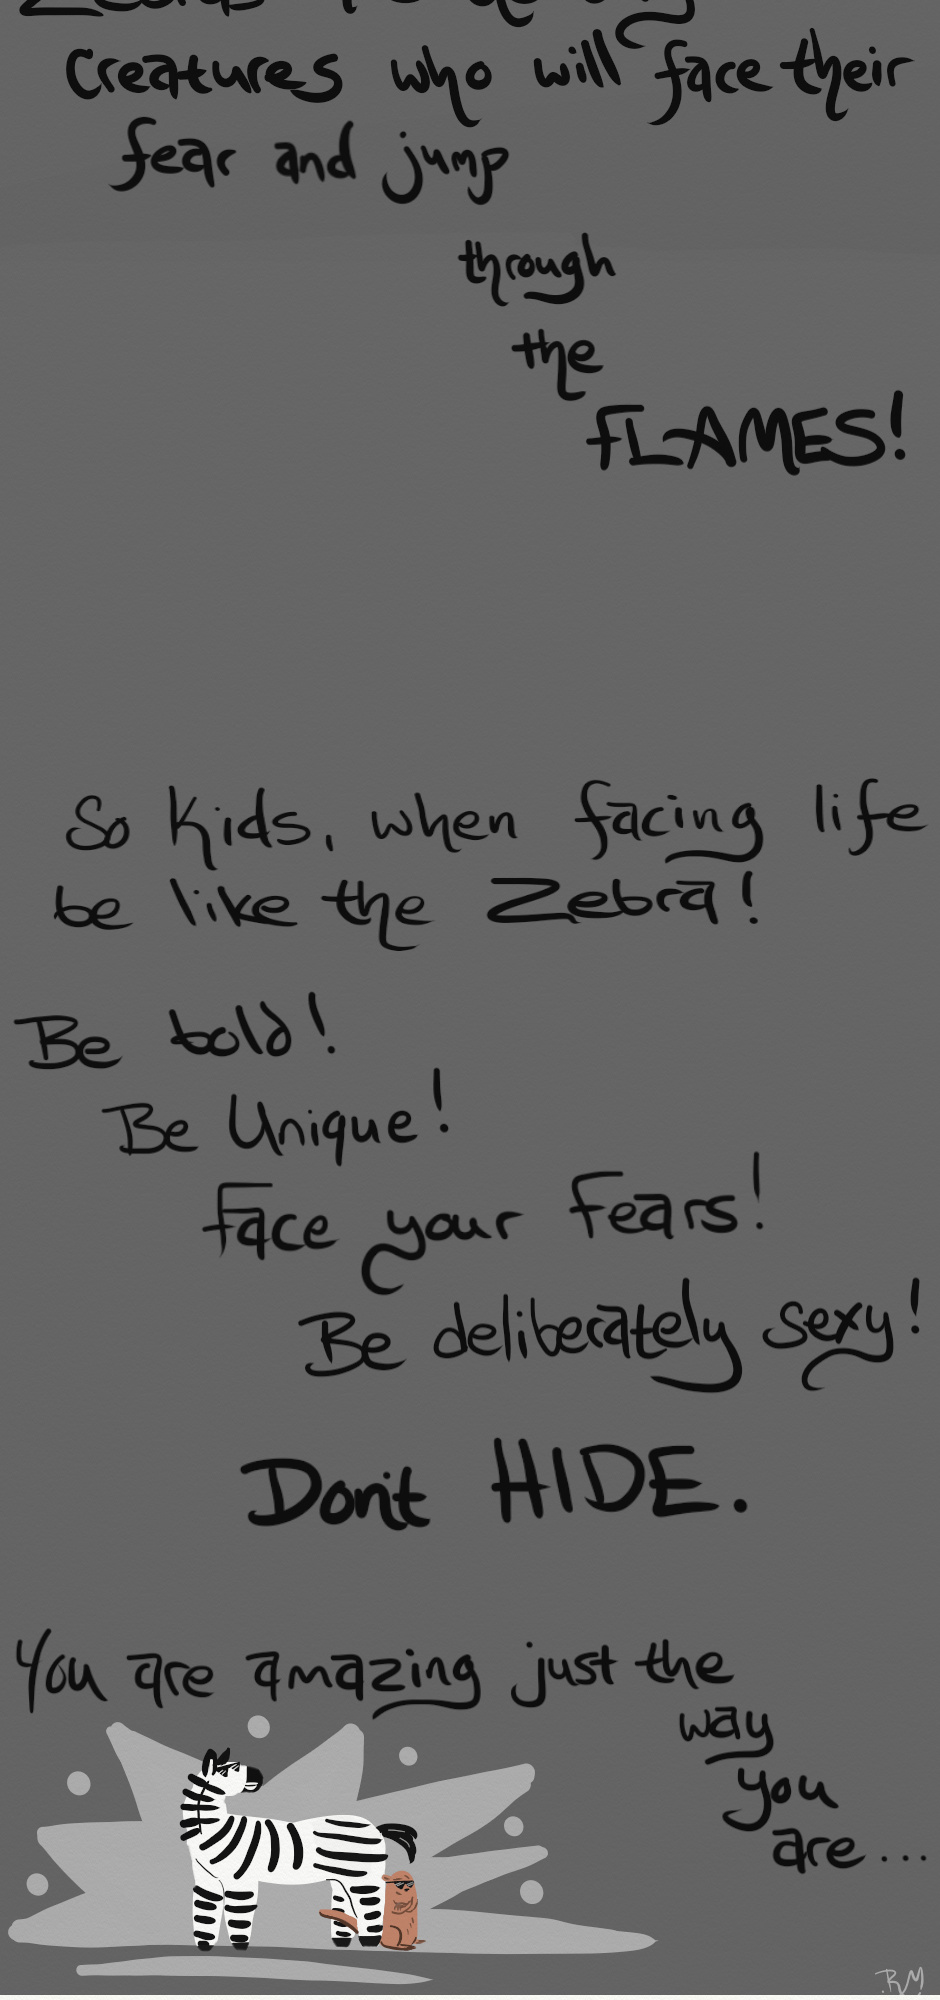 Creatures who will face their
fear and jump
through
the
FLAMES!
So Kids, when facing life
be like the Zebra!
Be bold!
Be Unique!
Face your Fears!
Be deliberately sexy!
Don't HIDE.
You are amazing just the
way
you
are...
RM